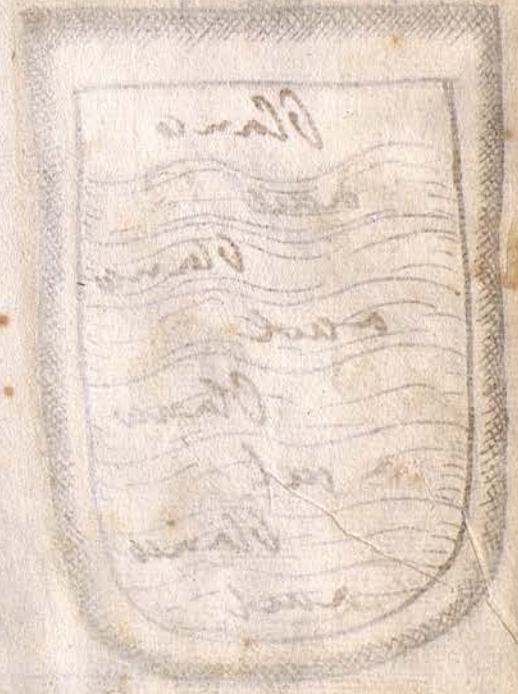 blanco
azul
blanco
azul
blanco
azul
blanco
azul